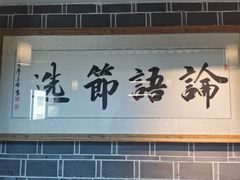 論語節选